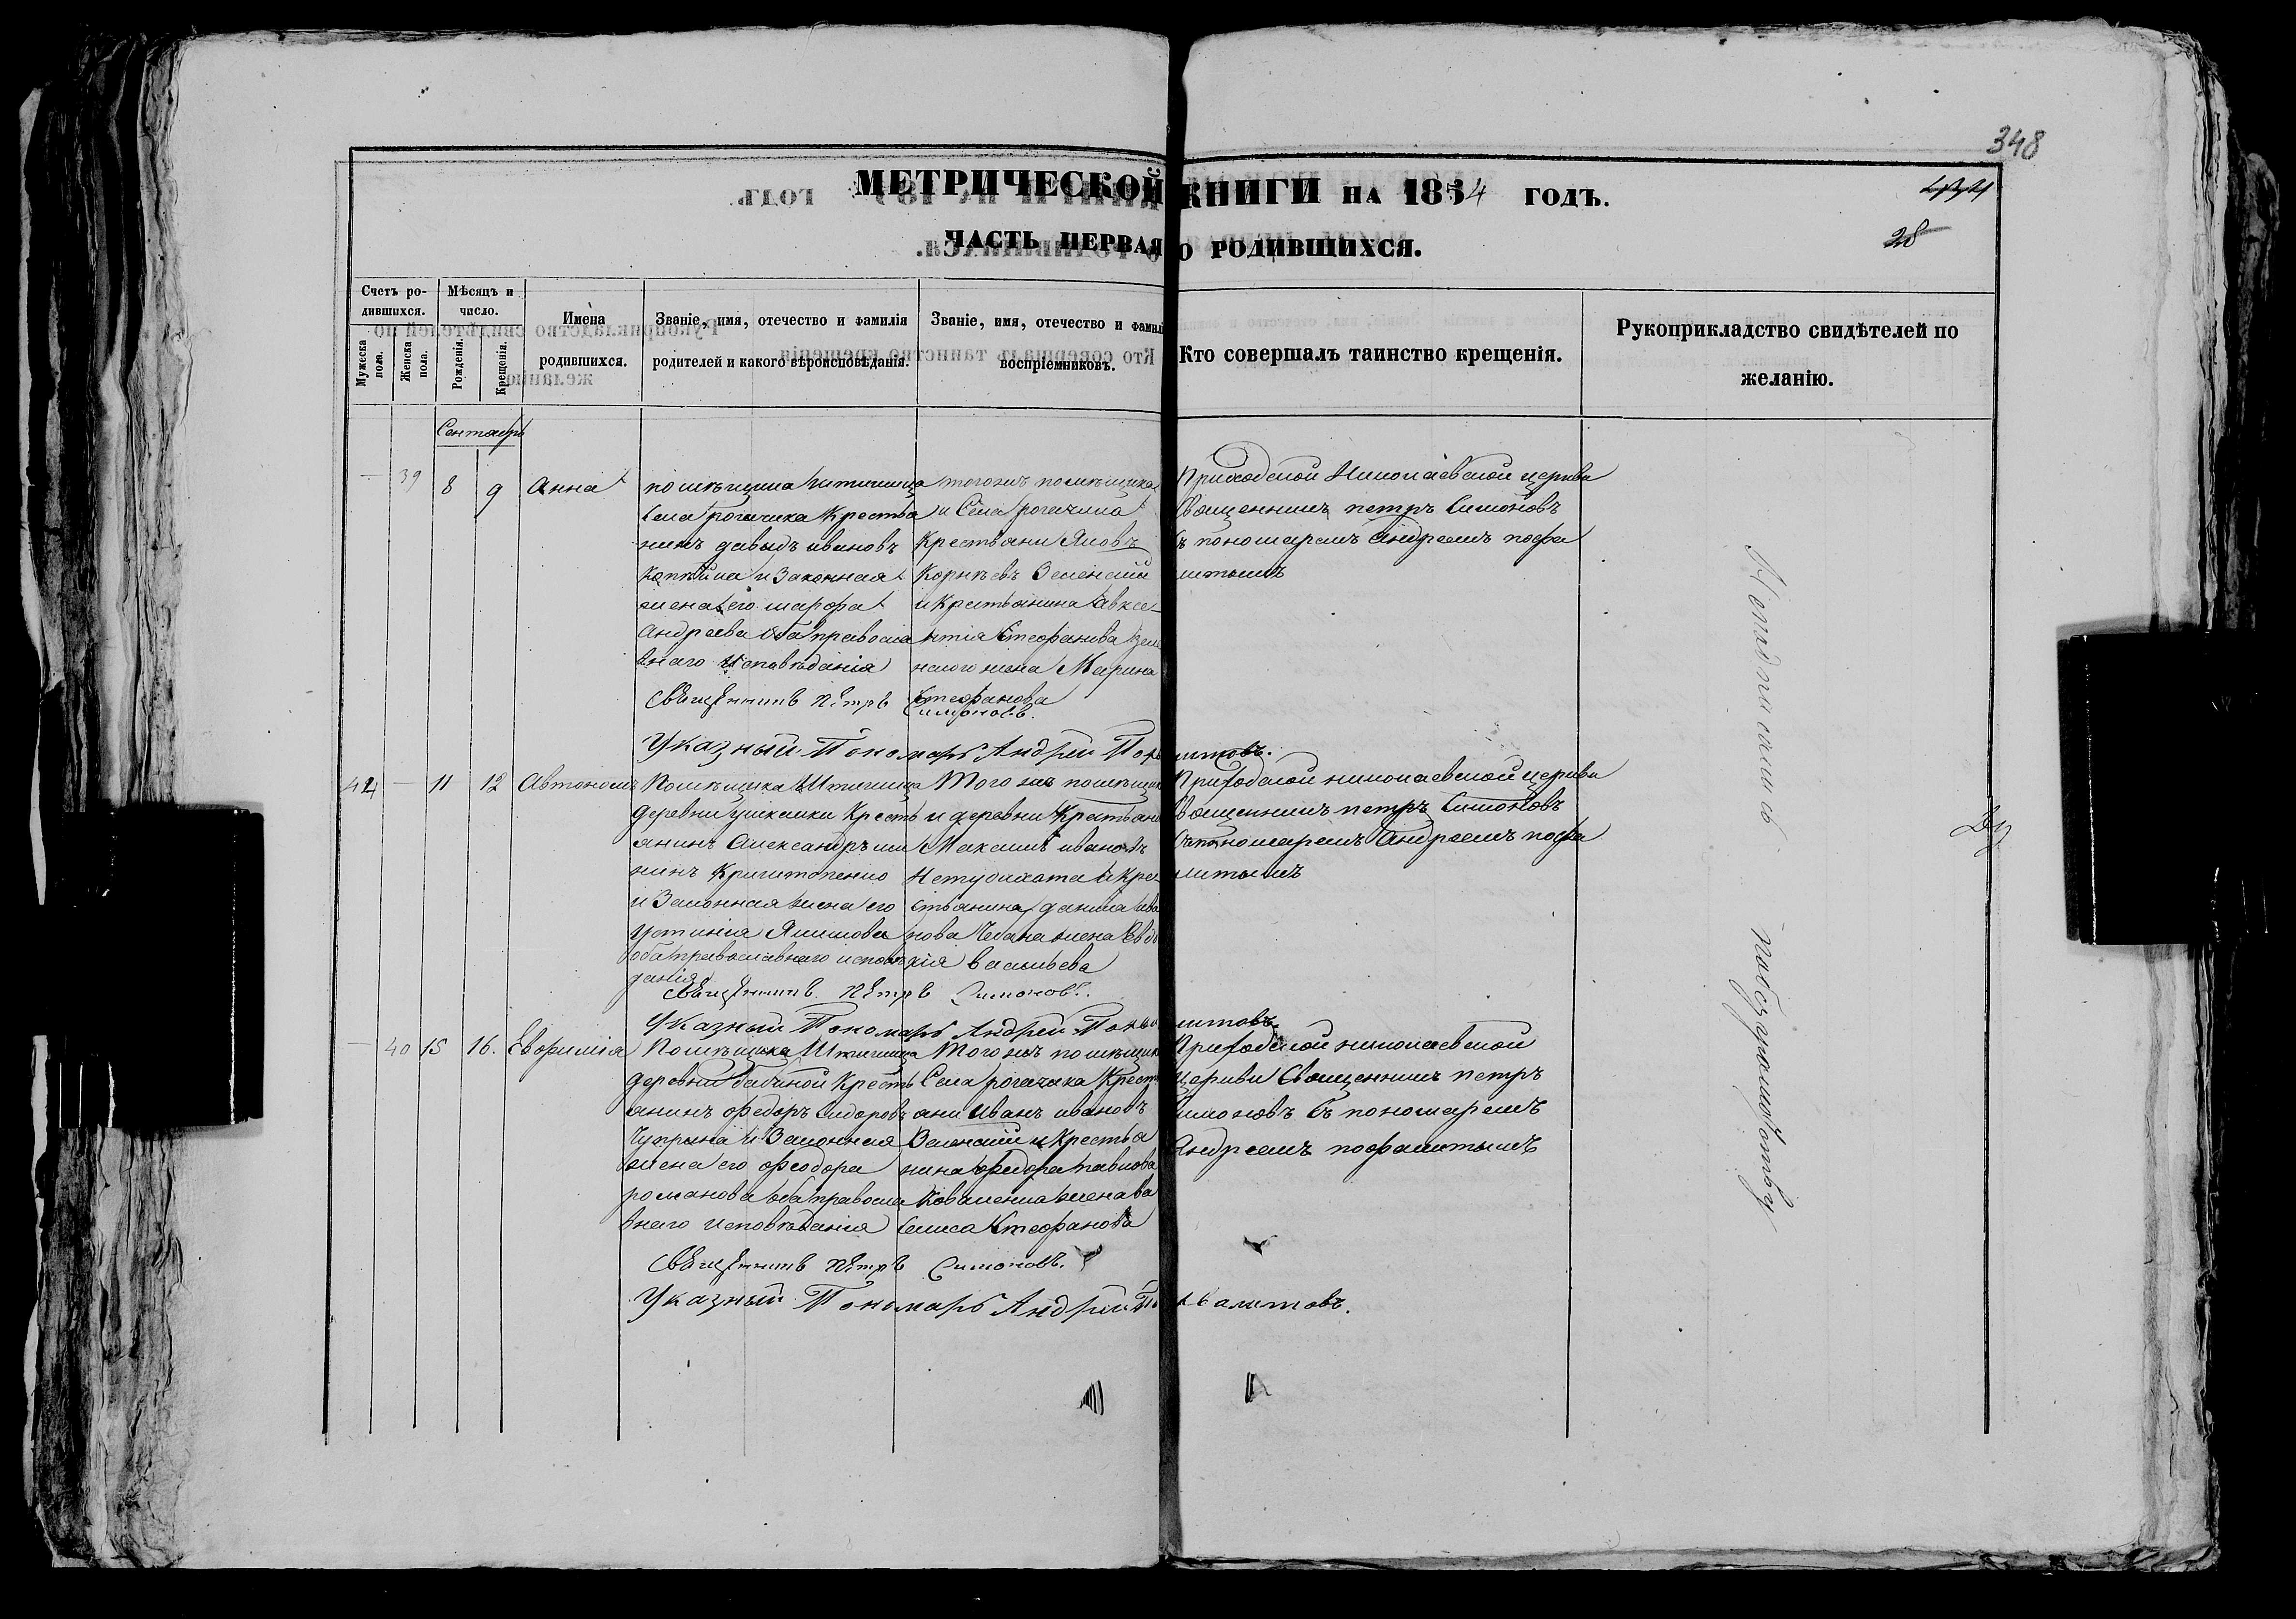 348
МЕТРИЧЕСКОЙ КНИГИ НА 1854 ГОДЪ.
28
ЧАСТЬ ПЕРВАЯ О РОДИВШИХСЯ.
Счетъ родившихся.
Мужеска пола.
Женска пола.
Мѣсяцъ и число.
Рожденія.
Крещенія.
Имена родившихся.
Званіе, имя, отечество и фамилія родителей и какого вѣроисповѣданія.
Званіе, имя, отечество и фамил воспріемниковъ.
Кто совершалъ таинство крещенія.
Рукоприкладство свидѣтелей по желанію.
Сентябрь
— 39 8 9 Анна
помѣщика
села рогачика Крестья
нинъ давыдъ ивановъ
и Законная
жена его марфа
Андреева оба правосла
внаго исповѣданія
тогожъ помѣщика
и Села рогачика
Крестьяни Яковъ
Корнѣевъ Зеленский
и Крестьянина авксе-
нтія Стефанова Зеле
нскаго жена Марина
Стефанова
Приходской Николаевской церкви
Священникъ петръ Симоновъ
съ пономаремъ Андреемъ поха
литымъ
Священникъ Петръ Симоновъ.
Указный Пономарь Андрей Пох литовъ.
44 — 11 12 Автономъ
Помѣщика
деревни ушкалки Кресть
янинъ Александръ
и Законная жена его
устинія Якимова
оба православнаго исповѣ
данія
Того жъ помѣщик
и деревни Крестьяни
Максимъ ивановъ
Нетудихата и Кре
стьянина данила ива
нова жена Евдо
кія васильева
Приходской николаевской церкви
Священникъ петръ Симоновъ
съ пономаремъ Андреемъ поха
литымъ
Священникъ Петръ Симоновъ.
Указный Пономарь Андрей Пох литовъ.
— 40 15 16. Евфимія
Помѣщика
деревни бабиной Кресть
янинъ федоръ сидоровъ
Чуприна и Законная
жена его феодора
романова оба правосла
внаго исповѣданія
Того жъ помѣщик
Села рогачика Кресть
яни иванъ ивановъ
Зеленский и Крестья
нина федора павлова
Коваленка жена ва
силиса Стефанова
Приходской николаевской
церкви Священникъ петръ
симоновъ съ пономаремъ
Андреемъ похалитымъ
Священникъ Петръ Симоновъ.
Указный Пономарь Андрей По хвалитовъ.